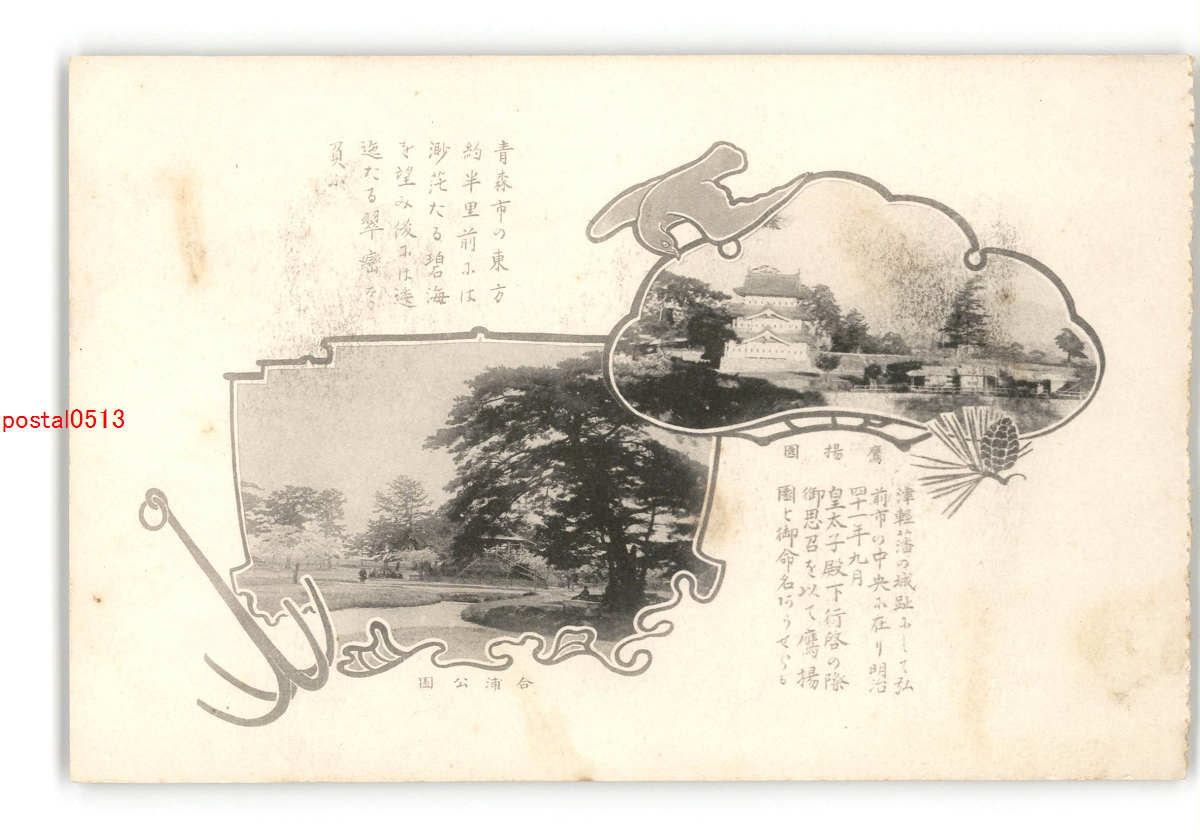 青森市の東方
約半里前には
渺茫たる碧海
を望み後には逶
迤たる翠巒を
負ふ
鷹揚園
津軽藩の城趾にして弘
前市の中央に在り明治
四十一年九月
皇太子殿下行啓の際
御思召を以て鷹揚
園と御命名あらせらる
合浦公園
postal0513